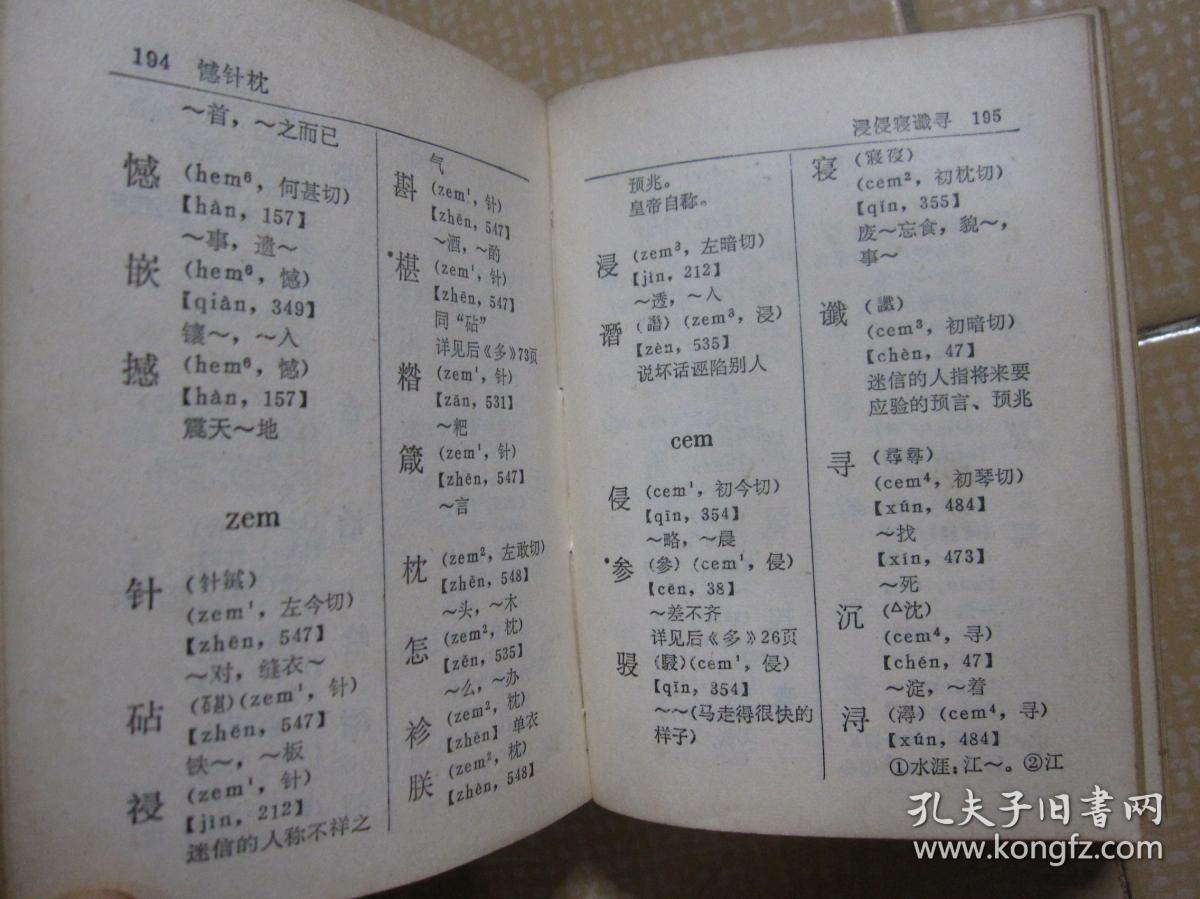 194 憾针枕
～首，～之而已
憾 (hem⁶，何甚切)
【hàn, 157】
～事，遗～
嵌 (hem⁶，憾)
【qiàn, 349】
镶～，～入
撼 (hem⁶，憾)
【hàn, 157】
震天～地
zem
针 (针鍼)
(zem¹，左今切)
【zhēn, 547】
～对，缝衣～
砧 (碪)(zem¹，针)
【zhēn, 547】
铁～，～板
祲 (zem¹，针)
【jìn, 212】
迷信的人称不祥之
气
斟 (zem¹，针)
【zhēn, 547】
～酒，～酌
·椹 (zem¹，针)
【zhēn, 547】
同“砧”
详见后《多》73页
糌 (zem¹，针)
【zān, 531】
～粑
箴 (zem¹，针)
【zhēn, 547】
～言
枕 (zem²，左敢切)
【zhěn, 548】
～头，～木
怎 (zem²，枕)
【zěn, 535】
～么，～办
袗 (zem²，枕)
【zhěn】单衣
朕 (zem²，枕)
【zhèn, 548】
浸侵寝谶寻 195
预兆。
皇帝自称。
浸 (zem³，左暗切)
【jìn, 212】
～透，～入
谮 (譖)(zem³，浸)
【zèn, 535】
说坏话诬陷别人
cem
侵 (cem¹，初今切)
【qīn, 354】
～略，～晨
·参 (參)(cem¹，侵)
【cēn, 38】
～差不齐
详见后《多》26页
骎 (駸)(cem¹，侵)
【qīn, 354】
～～(马走得很快的
样子)
寝 (寢寑)
(cem²，初枕切)
【qǐn, 355】
废～忘食，貌～，
事～
谶 (讖)
(cem³，初暗切)
【chèn, 47】
迷信的人指将来要
应验的预言、预兆
寻 (尋尋)
(cem⁴，初琴切)
【xún, 484】
～找
【xín, 473】
～死
沉 (△沈)
(cem⁴，寻)
【chén, 47】
～淀，～着
浔 (潯)(cem⁴，寻)
【xún, 484】
①水涯：江～。②江
孔夫子旧书网
www.kongfz.com